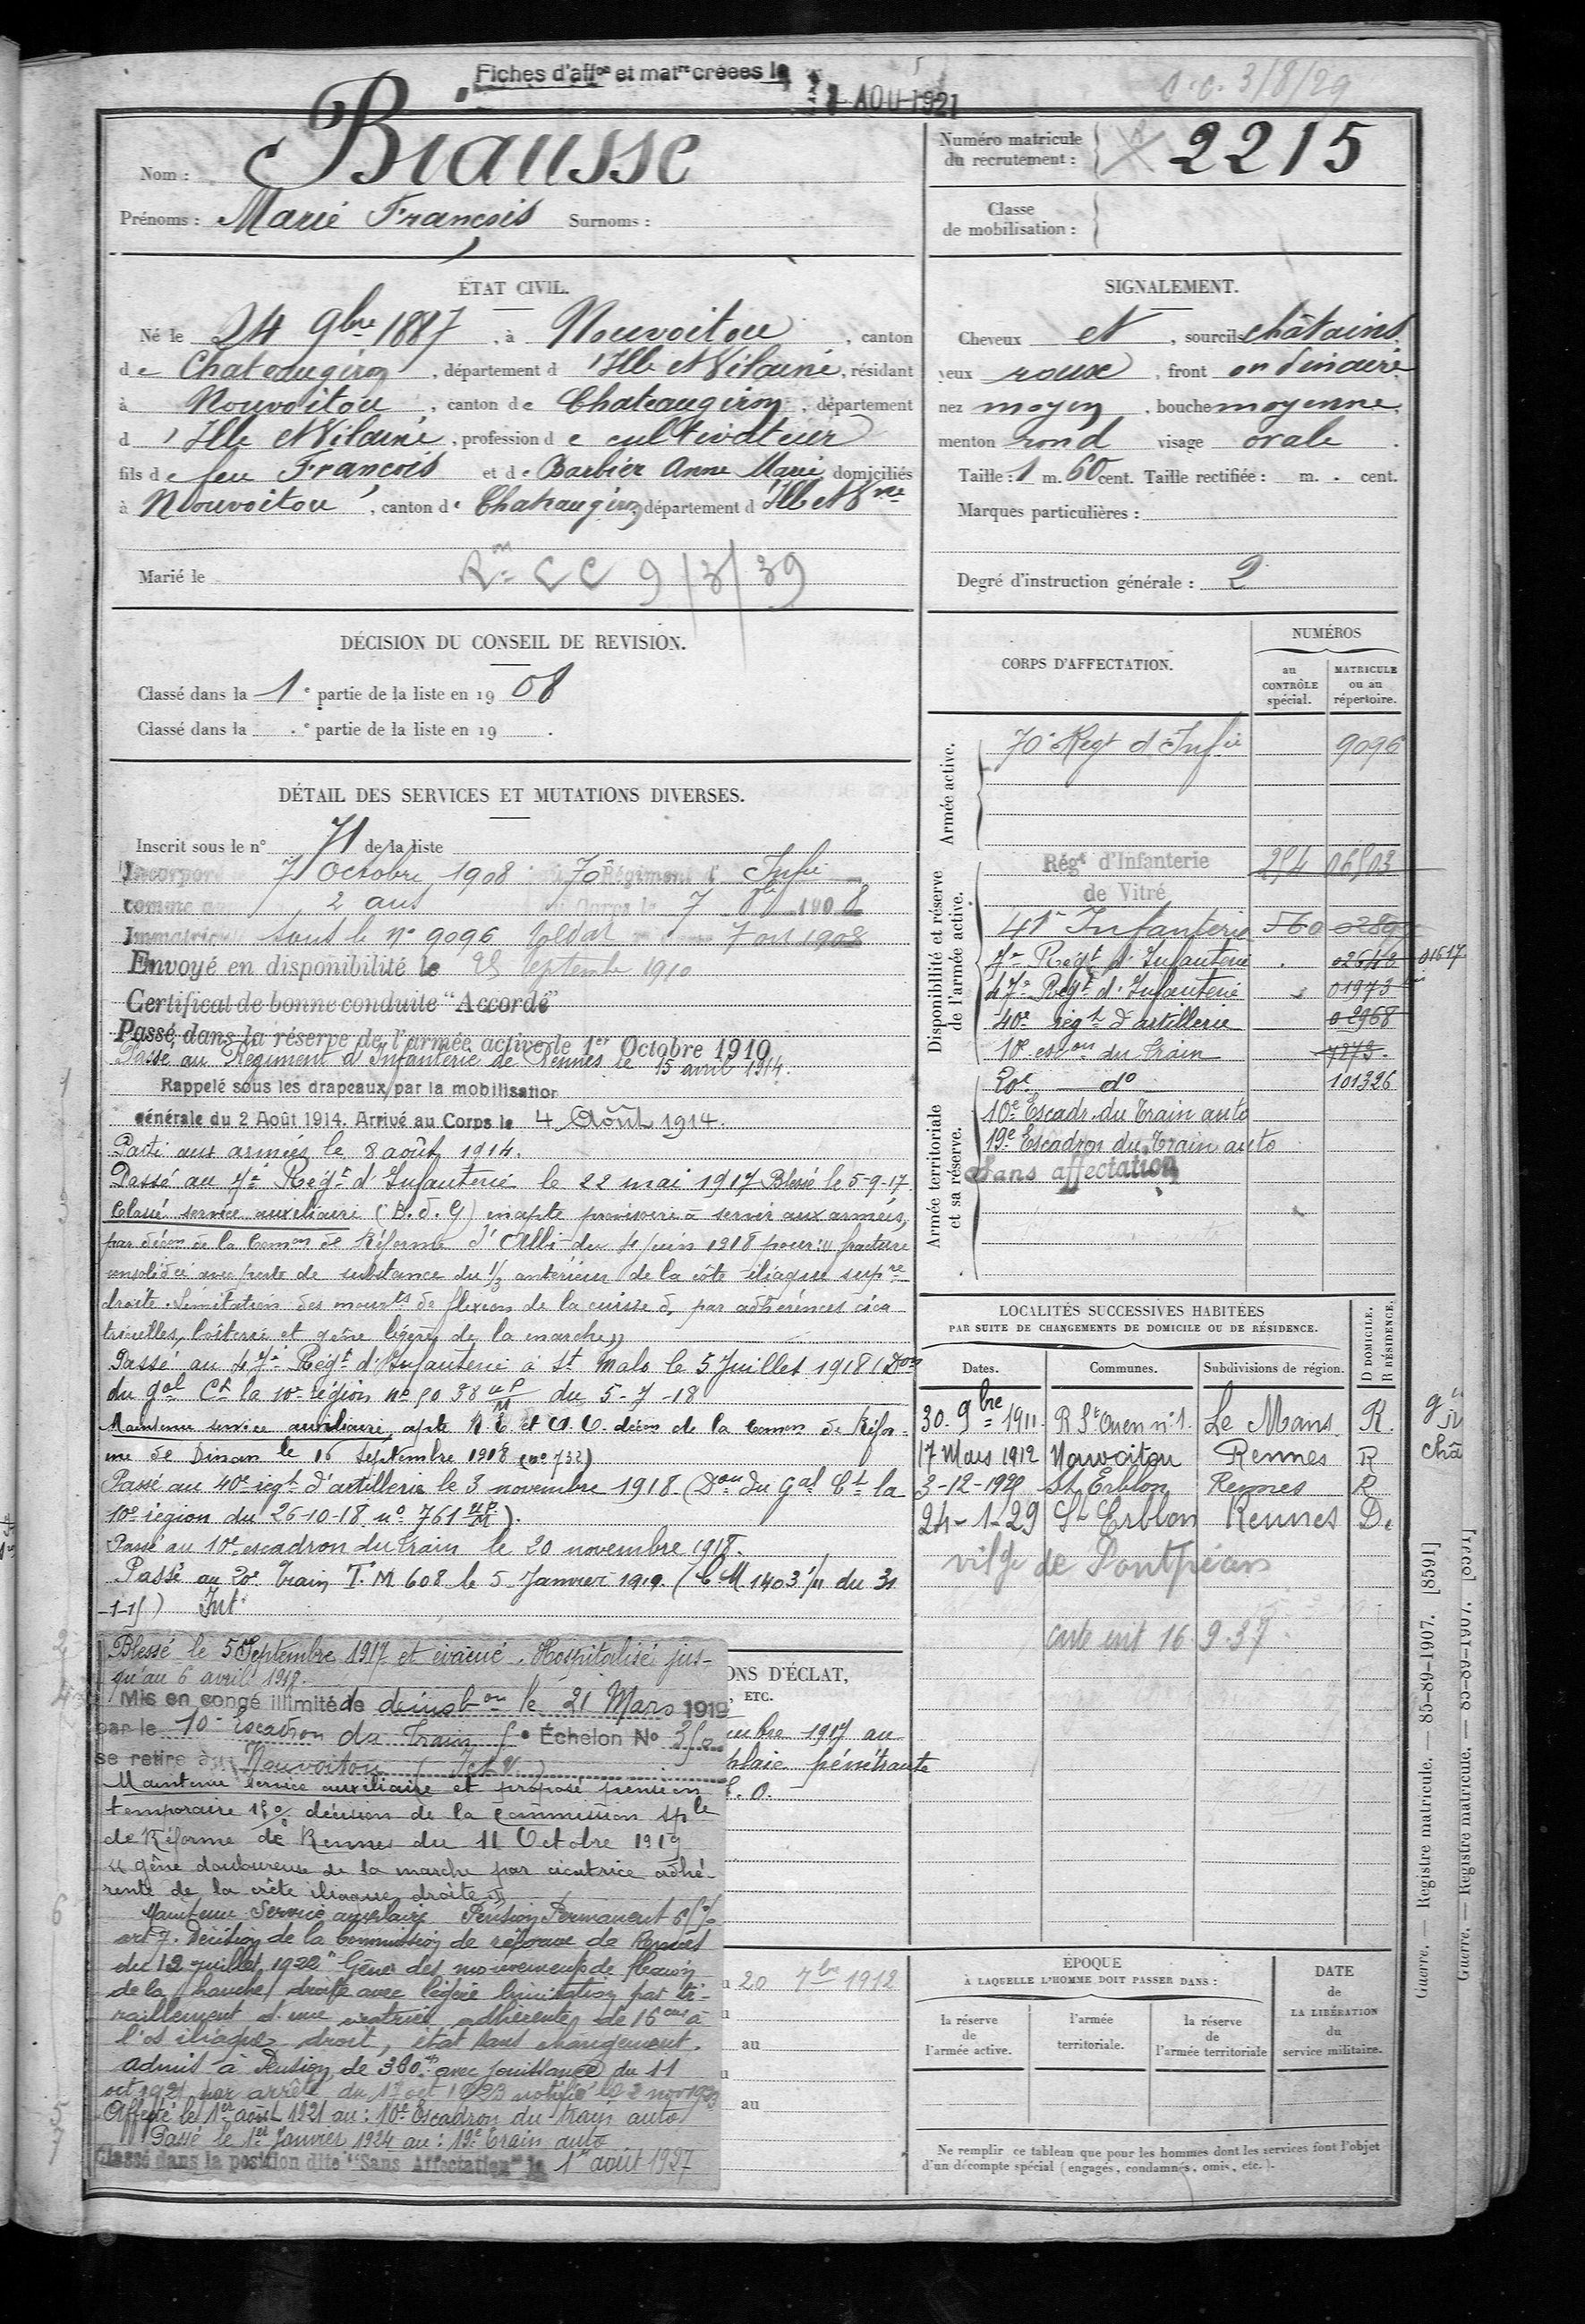 Fiches d'affon et matre créées le
AOU 1921
C.C. 3/8/29
Nom : Biausse
Prénoms : Marie François Surnoms :
Numéro matricule du recrutement : 2215
Classe de mobilisation :
ÉTAT CIVIL.
Né le 24 9bre 1887, à Nouvoitou, canton
de Chateaugiron, département d'Ille et Vilaine, résidant
à Nouvoitou, canton de Chateaugiron, département
d'Ille et Vilaine, profession de cultivateur
fils de feu François et de Barbier Anne Marie domiciliés
à Nouvoitou, canton de Chateaugiron département d'Ille et Vne
Marié le
Rm CC 9/3/39
SIGNALEMENT.
Cheveux et, sourcils châtains
yeux roux, front ordinaire
nez moyen, bouche moyenne,
menton rond visage ovale.
Taille : 1 m. 60 cent. Taille rectifiée : m. cent.
Marques particulières :
Degré d'instruction générale : 2
DÉCISION DU CONSEIL DE REVISION.
Classé dans la 1e partie de la liste en 1908
Classé dans la e partie de la liste en 19 .
DÉTAIL DES SERVICES ET MUTATIONS DIVERSES.
Inscrit sous le n° 71 de la liste
Incorporé 7 Octobre 1908 au 70 Régiment d' Infie
comme 2 ans au Corps le 7 8bre 1908
Immatriculé sous le n° 9096 soldat 7 oct 1908
Envoyé en disponibilité le 25 septembre 1910
Certificat de bonne conduite "Accordé"
Passé dans la réserve de l'armée active le 1er Octobre 1910
Passé au Régiment d'Infanterie de Rennes le 15 avril 1914.
Rappelé sous les drapeaux par la mobilisation
générale du 2 Août 1914. Arrivé au Corps le 4 Août 1914.
Parti aux armées le 8 août 1914.
Passé au 7e Régt d'Infanterie le 22 mai 1917 Blessé le 5-9-17
Classé service auxiliaire (B.d.G) inapte provisoire à servir aux armées,
par décon de la Comon de Réforme d'Albi du 4 juin 1918 pour : "fracture
consolidée avec perte de substance du 1/3 antérieur de la côte iliaque supre
droite. Limitation des mouvts de flexion de la cuisse d, par adhérences cica
tricielles, boiterie et gêne légère de la marche"
Passé au 47e Régt d'Infanterie à St Malo le 5 Juillet 1918 (Don
du gal Ct la 10e région no 5038 du 5-7-18
Maintenu service auxiliaire, apte décon de la Comon de Réfor-
me de Dinan le 16 septembre 1918 (no 732)
Passé au 40e régt d'artillerie le 3 novembre 1918 (Don du Gal Ct la
10e région du 26-10-18 no 761).
Passé au 10e escadron du train le 20 novembre 1918.
Passé au 20e Train T.M 608 le 5 Janvier 1919. (C.M 1403 1/11 du 31
Blessé le 5 Septembre 1917 et évacué. Hospitalisé jus-
qu'au 6 avril 1918.
Mis en congé illimité de démobon le 21 Mars 1919
par le 10e Escadron du Train Echelon No
se retire à Nouvoitou (I et V)
Maintenu service auxiliaire et proposé pension
temporaire 15% décision de la commission sple
de Réforme de Rennes du 11 Octobre 1919
"gêne douloureuse de la marche par cicatrice adhé-
rente de la crête iliaque droite"
Maintenu Service auxiliaire Pension Permanent
art 7. Décision de la Commission de réforme de Rennes
du 12 juillet 1922 "Gêne des mouvements de flexion
de la hanche droite avec légère limitation par ti-
raillement d'une cicatrice adhérente de 16 cm à
l'os iliaque droit, état sans changement.
admis à Pension de 360 avec jouissance du 11
oct 1921 par arrêté du 17 oct 1923 notifié le 2 nov 1923
Affecté le 1er août 1921 au : 10e Escadron du train auto
Passé le 1er Janvier 1924 au : 19e Train auto
Classé dans la position dite "Sans Affectation" le 1er août 1927
ONS D'ÉCLAT,
, ETC.
mbre 1917 au
plaie pénétrante
20 7bre 1912
au
au
CORPS D'AFFECTATION.
NUMÉROS
au CONTRÔLE spécial.
MATRICULE ou au répertoire.
Armée active.
70e Régt d'Infie 9096
Disponibilité et réserve de l'armée active.
Régt d'Infanterie 254 06503
de Vitré
41e Infanterie 560
7e Régt d'Infanterie 01617
47e Régt d'Infanterie 01973
40e régt d'artillerie 02968
10e escon du train 7273
Armée territoriale et sa réserve.
20e do 101326
10e Escadr. du Train auto
19e Escadron du Train auto
Sans affectation
LOCALITÉS SUCCESSIVES HABITÉES
PAR SUITE DE CHANGEMENTS DE DOMICILE OU DE RÉSIDENCE.
Dates. Communes. Subdivisions de région. D DOMICILE. R RÉSIDENCE.
30. 9bre 1911. R St Ouen n° 1. Le Mans R.
17 Mars 1912 Nouvoitou Rennes R
3-12-1920 St Erblon Rennes R
24-1-29 St Erblon Rennes D.
vilge de Pontpéan
16.9.37
ÉPOQUE
À LAQUELLE L'HOMME DOIT PASSER DANS :
la réserve de l'armée active.
l'armée territoriale.
la réserve de l'armée territoriale
DATE de LA LIBÉRATION du service militaire.
Ne remplir ce tableau que pour les hommes dont les services font l'objet
d'un décompte spécial (engagés, condamnés, omis, etc.).
Guerre. — Registre matricule. — 85-89-1907. [8591]
Guerre. — Registre matricule. — 85-89-1907. [8591]